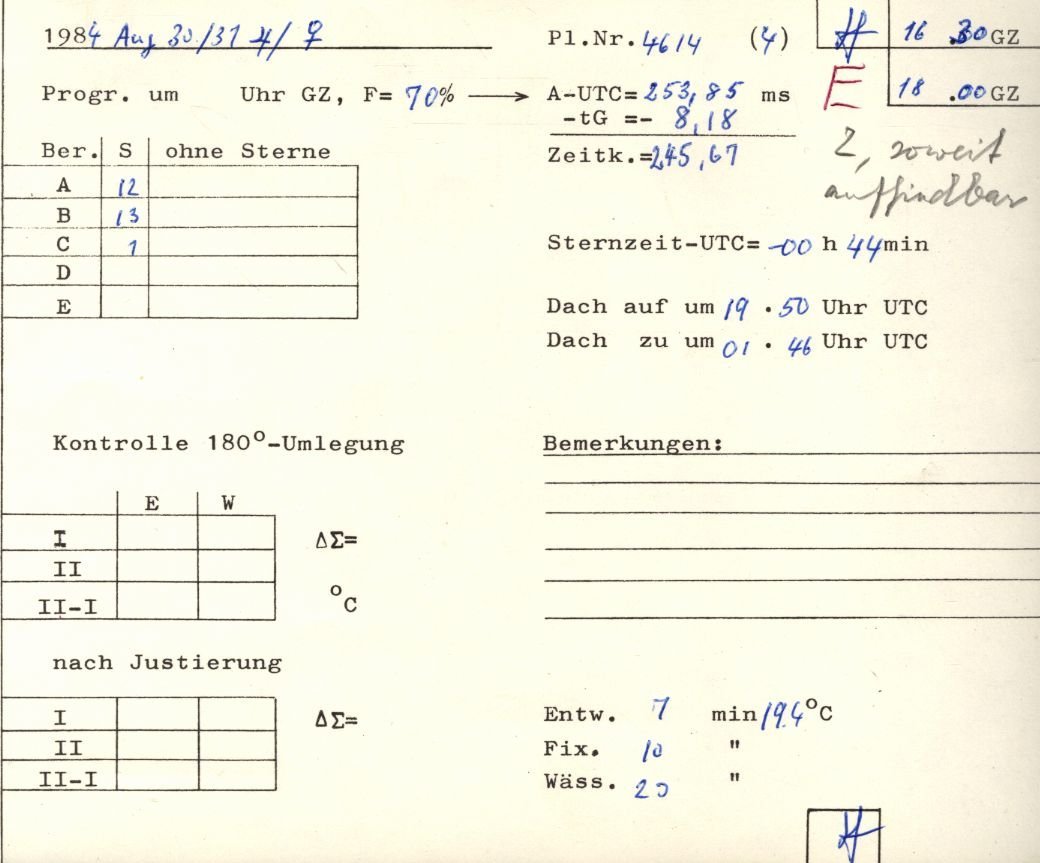 1984 Aug 30/31 ♃/♀ Pl.Nr. 4614 (4) 16 .30 GZ
Progr. um Uhr GZ, F= 70% → A-UTC= 253,85 ms E 18 .00 GZ
-tG =- 8,18
Ber. S ohne Sterne Zeitk.= 245,67 2, soweit
auffindbar
A 12
B 13
C 1 Sternzeit-UTC= -00 h 44 min
D
E Dach auf um 19 . 50 Uhr UTC
Dach zu um 01 . 46 Uhr UTC
Kontrolle 180°-Umlegung Bemerkungen:
E W
I ΔΣ=
II
II-I °C
nach Justierung
I ΔΣ= Entw. 7 min 19.4 °C
II Fix. 10 "
II-I Wäss. 20 "